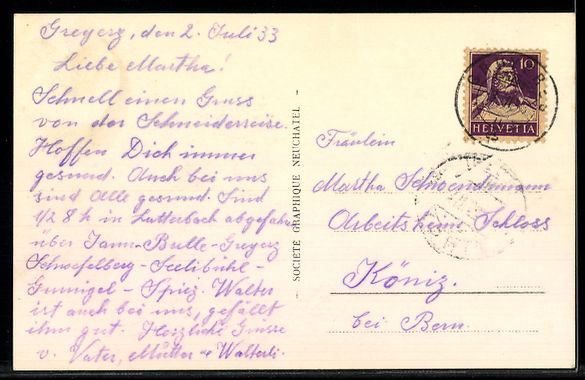 Greyerz, den 2. Juli 33
Liebe Martha!
Schnell einen Gruss
von der Schneiderreise.
Hoffen Dich immer
gesund. Auch bei uns
sind Alle gesund. Sind
1/2 8 h in Latterbach abgefahren
über Jaun-Bulle-Greyerz
Schwefelberg-Seelibühl-
Gurnigel-Spiez. Walter
ist auch bei uns, gefällt
ihm gut. Herzliche Grüsse
v. Vater, Mutter + Walterli.
- SOCIETE GRAPHIQUE NEUCHATEL -
10
HELVETIA
Fräulein
Martha
Arbeitsheim Schloss
Köniz.
bei Bern.